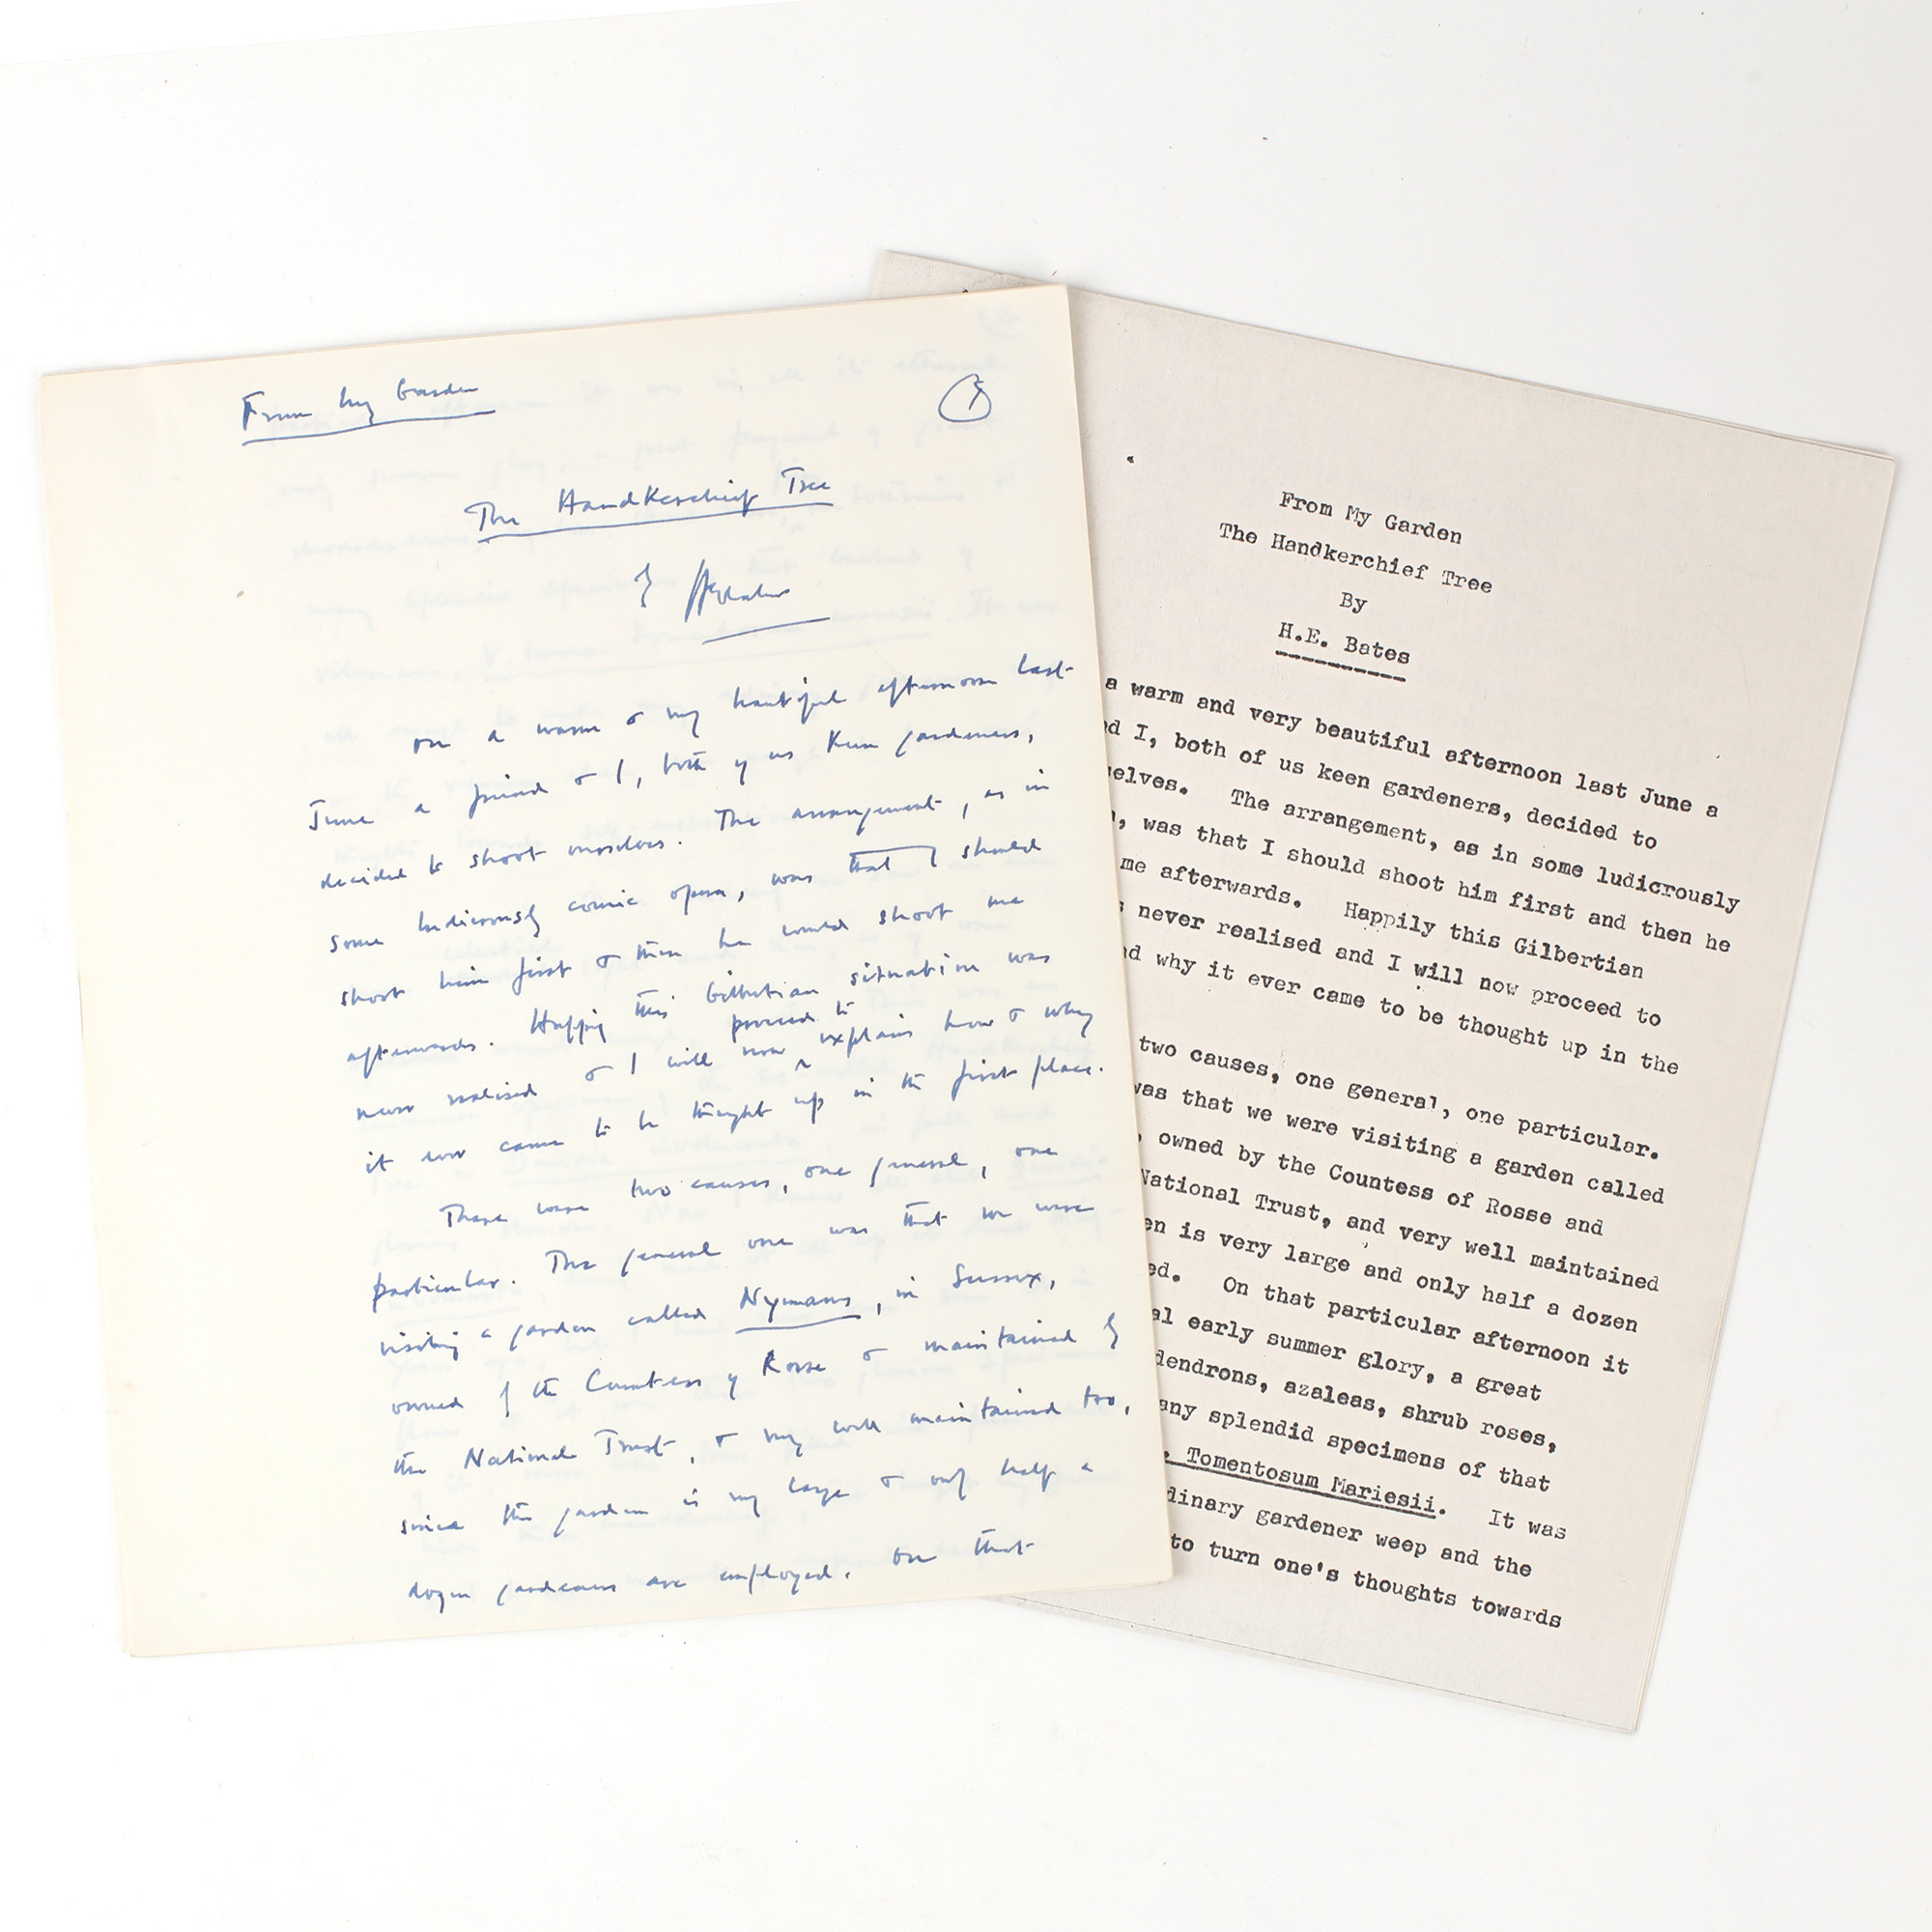 From My Garden
1
The Handkerchief Tree
By HEBates
On a warm & very beautiful afternoon last
June a friend & I, both of us keen gardeners,
decided to shoot ourselves. The arrangement, as in
some ludicrously comic opera, was that I should
shoot him first & then he would shoot me
afterwards. Happily this Gilbertian situation was
proceed to
never realised & I will now ^ explain how & why
it ever came to be thought up in the first place.
There were two causes, one general, one
particular. The general one was that we were
visiting a garden called Nymans, in Sussex,
owned by the Countess of Rosse & maintained by
the National Trust, & very well maintained too,
since the garden is very large & only half a
dozen gardeners are employed. On that
From My Garden
The Handkerchief Tree
By
H.E. Bates
a warm and very beautiful afternoon last June a
d I, both of us keen gardeners, decided to
elves. The arrangement, as in some ludicrously
, was that I should shoot him first and then he
me afterwards. Happily this Gilbertian
s never realised and I will now proceed to
nd why it ever came to be thought up in the
two causes, one general, one particular.
was that we were visiting a garden called
, owned by the Countess of Rosse and
National Trust, and very well maintained
en is very large and only half a dozen
ed. On that particular afternoon it
al early summer glory, a great
dendrons, azaleas, shrub roses,
any splendid specimens of that
. Tomentosum Mariesii. It was
dinary gardener weep and the
to turn one's thoughts towards